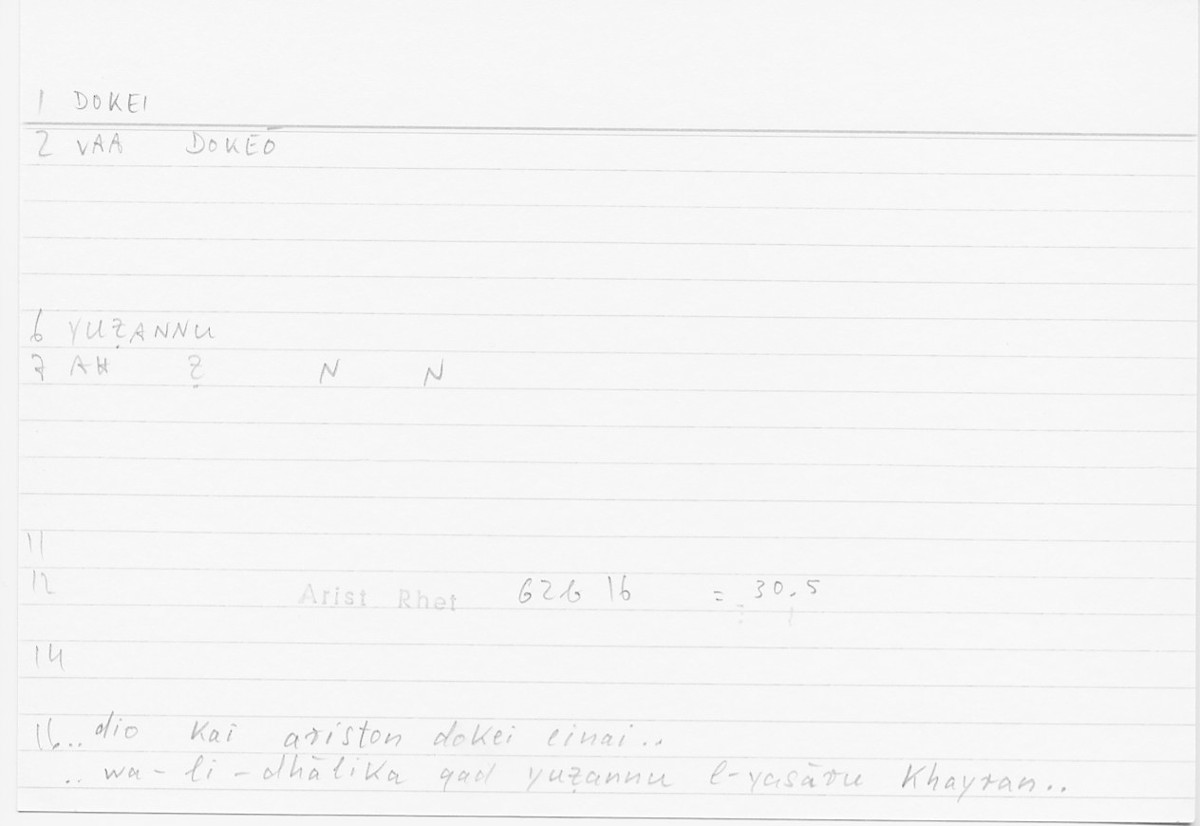 1 DOKEI
2 VAA DOKEŌ
6 YUẒANNU
7 AH Ẓ N N
11
12 Arist Rhet 62b 16 = 30.5
14
16.. dio kai ariston dokei einai..
.. wa-li-dhālika qad yuẓannu l-yasāru khayran..